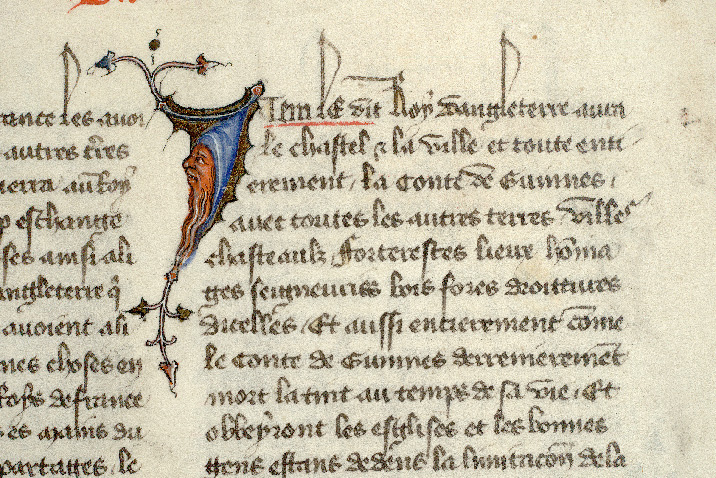 rance les auoi
autres tr̄es
terra au Roy
p eschange
ses ainsi ali
angleterre q̄
auoient ali
nes choses en
Roys de france
es mains du
partages. le
Item le dit Roy dangleterre aura
le chastel & la ville et toute enti
erement. la Conte de Guinnes.
auec toutes les autres terres villes
chasteaulx forteresces lieux hōma
ges seigneuries bois fores droittures
Dicelles. Et aussi entierement cōme
le Conte de Guinnes derrenieremēt
mort la tint au temps de sa vie. Et
obbeyront les esglises et les bonnes
gens estans dedens la limitacōn de la